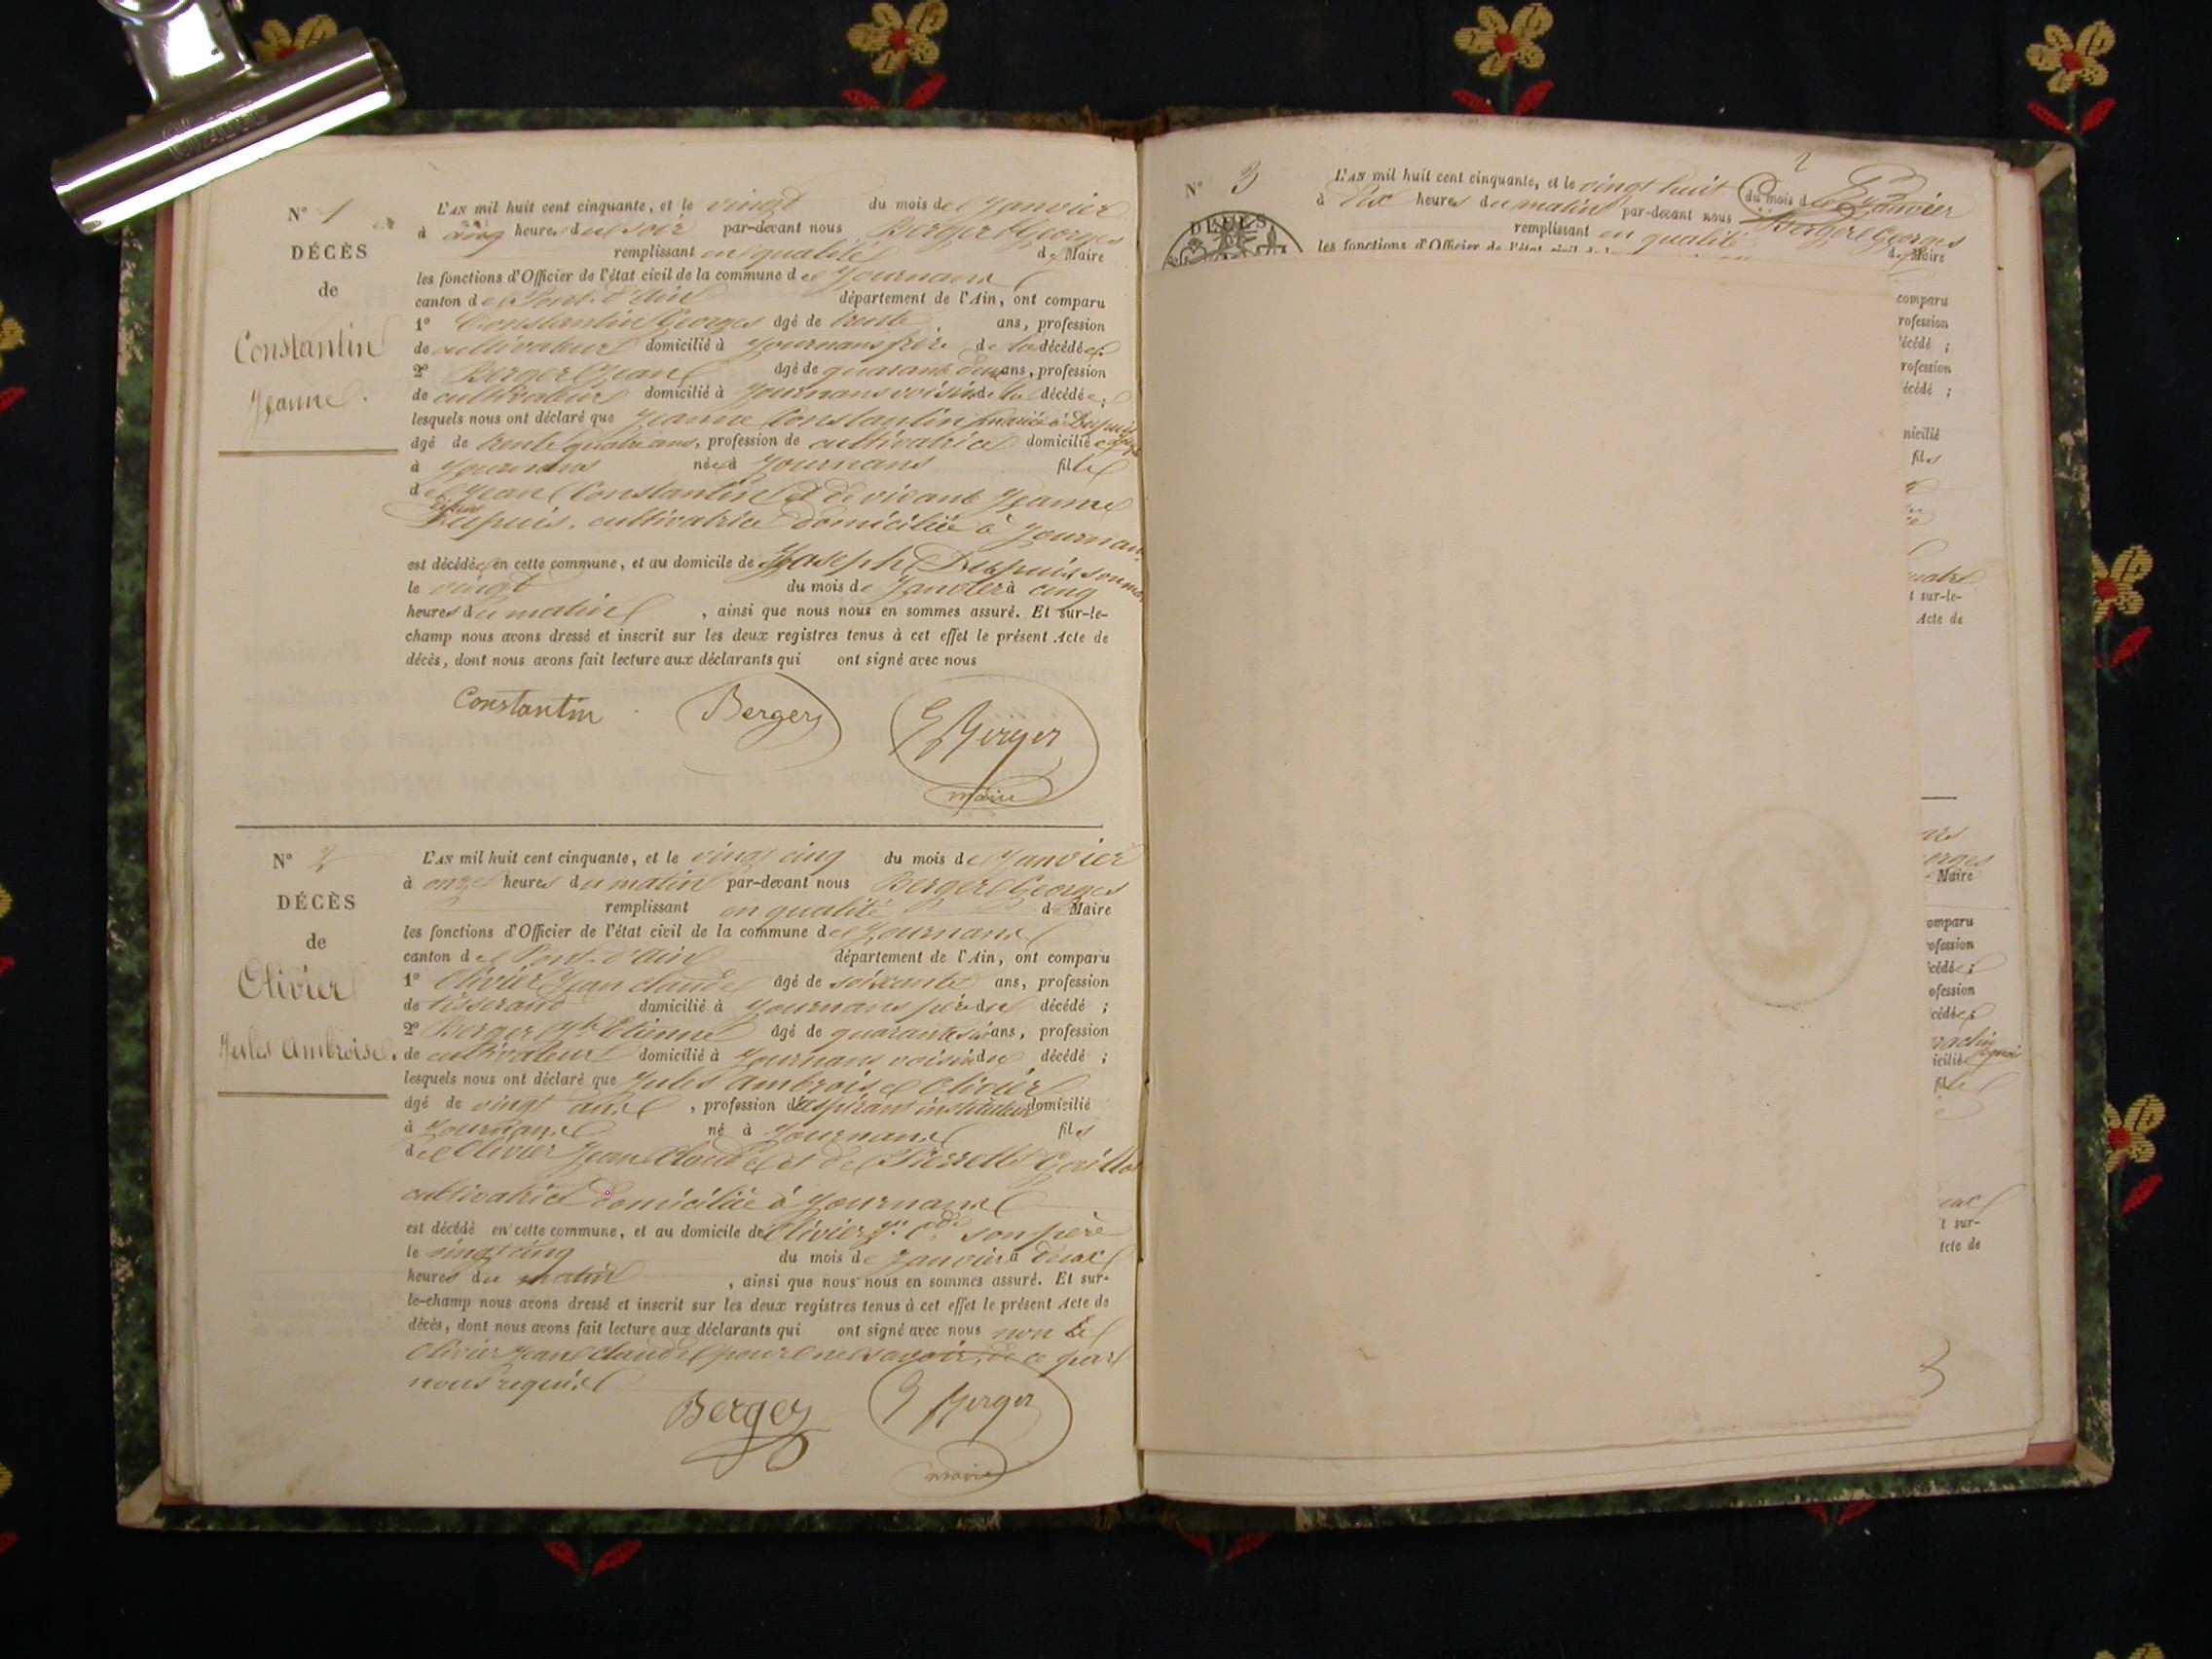 N° 1
DÉCÈS
de
Constantin
Jeanne.
L'AN mil huit cent cinquante, et le vingt du mois de Janvier
à cinq heures du soir par-devant nous Berger Georges
remplissant en qualité de Maire
les fonctions d'Officier de l'état civil de la commune de Journans
canton de Pont-d'Ain département de l'Ain, ont comparu
1° Constantin Georges âgé de trente ans, profession
de cultivateur domicilié à Journans frère de la décédée;
2° Berger Jean âgé de quarante deux ans, profession
de cultivateur domicilié à Journans voisin de la décédée;
lesquels nous ont déclaré que Jeanne Constantin mariée à Dupuis
âgé de trente quatre ans, profession de cultivatrice domicilié
à Journans née à Journans fille
de Jean Constantin et de vivant Jeanne
Dupuis, cultivatrice domiciliée à Journans
est décédée en cette commune, et au domicile de Joseph Dupuis son mari
le vingt du mois de Janvier à cinq
heures du matin, ainsi que nous nous en sommes assuré. Et sur-le-
champ nous avons dressé et inscrit sur les deux registres tenus à cet effet le présent Acte de
décès, dont nous avons fait lecture aux déclarants qui ont signé avec nous
Constantin Berger G Berger
maire
N° 2
DÉCÈS
de
Olivier
Jules Ambroise.
L'AN mil huit cent cinquante, et le vingt cinq du mois de Janvier
à onze heures du matin par-devant nous Berger Georges
remplissant en qualité de Maire
les fonctions d'Officier de l'état civil de la commune de Journans
canton de Pont-d'Ain département de l'Ain, ont comparu
1° Olivier Jean Claude âgé de soixante ans, profession
de tisserand domicilié à Journans père du décédé ;
2° Berger Etienne âgé de quarante six ans, profession
de cultivateur domicilié à Journans voisin du décédé ;
lesquels nous ont déclaré que Jules Ambroise Olivier
âgé de vingt ans, profession d'aspirant instituteur domicilié
à Journans né à Journans fils
de Olivier Jean Claude et de Pierrette
cultivatrice domiciliée à Journans
est décédé en cette commune, et au domicile de Olivier Jn Cde son père
le vingt cinq du mois de Janvier à deux
heures du matin, ainsi que nous nous en sommes assuré. Et sur-
le-champ nous avons dressé et inscrit sur les deux registres tenus à cet effet le présent Acte de
décès, dont nous avons fait lecture aux déclarants qui ont signé avec nous non le
Olivier Jean Claude pour ne savoir, de ce par
nous requis
Berger G Berger
maire
2
N° 3
DÉCÈS
L'AN mil huit cent cinquante, et le vingt huit du mois de Janvier
à dix heures du matin par-devant nous Berger Georges
remplissant en qualité de Maire
les fonctions d'Officier de l'état civil de la
comparu
rofession
écédé ;
rofession
écédé ;
micilié
fils
t sur-le-
Acte de
orges
Maire
omparu
ofession
cédée ;
ofession
cédée
icilié
fille
t sur-
Acte de